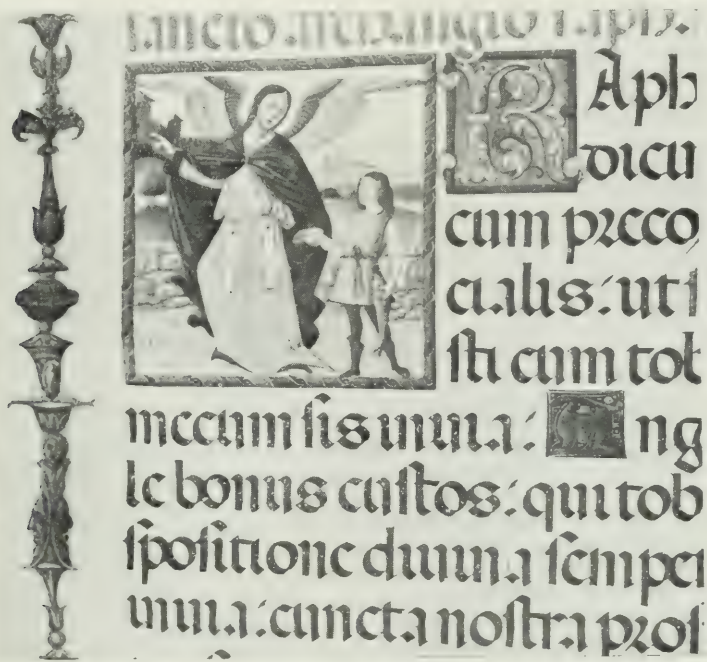 sancto archangelo raph.
RAph
dicu
cum precor
cialis: ut i
sti cum tob
mecum sis in uia: Ang
le bonus custos: qui tob
spositione diuina semper
in uia: cuncta nostra prosp